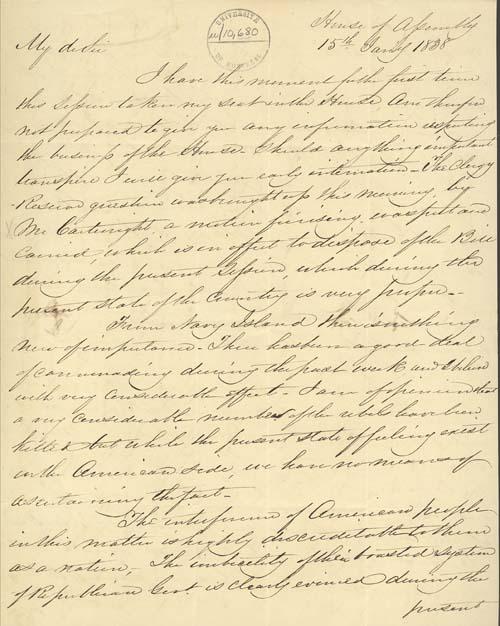 UNIVERSITÉ
10,680
DE MONTRÉAL
House of Assembly
15th Jany 1838
My dr Sir
I have this moment for the first time
this Session taken my seat in the House Am therefore
not prepared to give you any information respecting
the business of the House. Should anything important
transpire I will give you early intimation - The Clergy
Reserve question was brought up this morning by
Mr Cartwright, a motion was put and
carried, which is in effect to dispose of the Bill
during the present Session, which during the
present state of the Country is very proper -
From Navy Island there is nothing
new of importance - There has been a good deal
of cannonading during the past week and I believe
with very considerable effect - I am of opinion that
a very considerable number of the rebels have been
killed but while the present state of feeling exist
on the American side, we have no means of
ascertaining the fact -
The interference of American people
in this matter is highly discreditable to them
as a nation, The imbecility of their boasted system
of Republican Govt. is clearly evinced during the
present